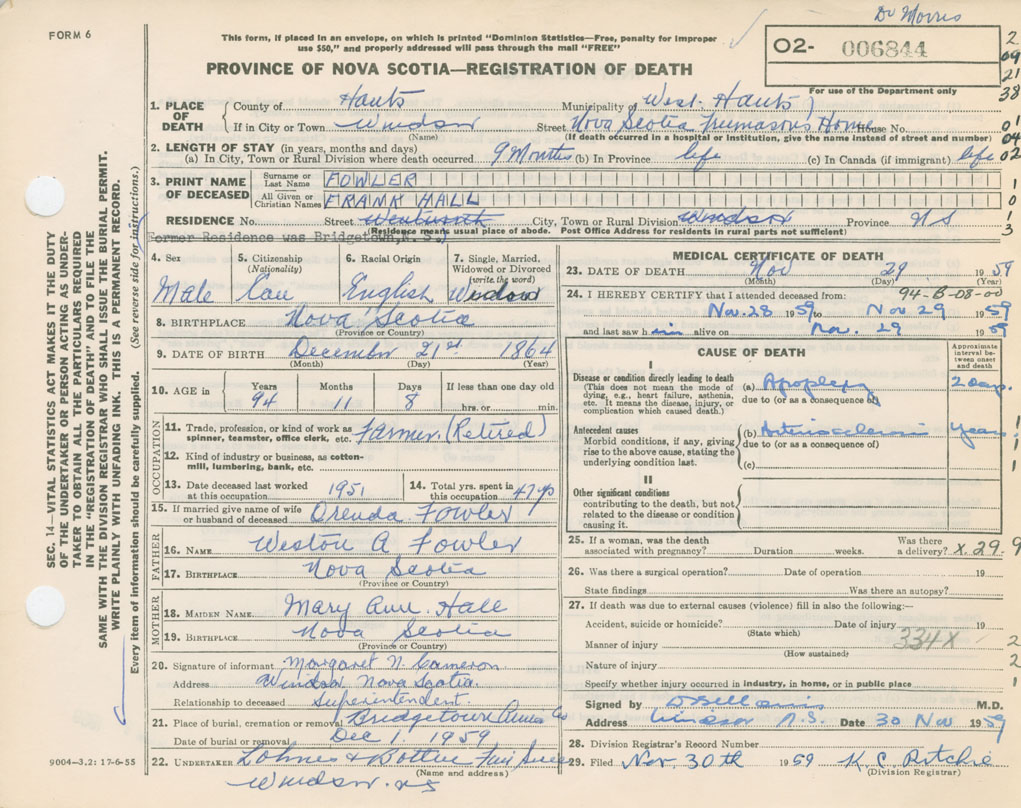 Dr Morris
FORM 6
This form, if placed in an envelope, on which is printed "Dominion Statistics—Free, penalty for improper
use $50," and properly addressed will pass through the mail "FREE"
O2- 006844
PROVINCE OF NOVA SCOTIA—REGISTRATION OF DEATH
For use of the Department only
2
09
21
38
01
04
02
1
0
1
3
1. PLACE OF DEATH
County of Hants Municipality of West Hants
If in City or Town Windsor Street Nova Scotia Freemasons Home House No.
(Name) (If death occurred in a hospital or institution, give the name instead of street and number)
2. LENGTH OF STAY (in years, months and days)
(a) In City, Town or Rural Division where death occurred 9 Months (b) In Province life (c) In Canada (if immigrant) life
3. PRINT NAME OF DECEASED
Surname or Last Name FOWLER
All Given or Christian Names FRANK HALL
RESIDENCE No. Street Wentworth City, Town or Rural Division Windsor Province N S
(Residence means usual place of abode. Post Office Address for residents in rural parts not sufficient)
Former Residence was Bridgetown, N.S.)
4. Sex Male
5. Citizenship (Nationality) Can
6. Racial Origin English
7. Single, Married, Widowed or Divorced (write the word) Widow
8. BIRTHPLACE Nova Scotia
(Province or Country)
9. DATE OF BIRTH December 21st 1864
(Month) (Day) (Year)
10. AGE in Years 94 Months 11 Days 8 If less than one day old hrs. or min.
OCCUPATION
11. Trade, profession, or kind of work as spinner, teamster, office clerk, etc. Farmer (Retired)
12. Kind of industry or business, as cotton-mill, lumbering, bank, etc.
13. Date deceased last worked at this occupation 1951
14. Total yrs. spent in this occupation 47 yrs
15. If married give name of wife or husband of deceased Orenda Fowler
FATHER
16. NAME Weston A Fowler
17. BIRTHPLACE Nova Scotia
(Province or Country)
MOTHER
18. MAIDEN NAME Mary Ann Hall
19. BIRTHPLACE Nova Scotia
(Province or Country)
20. Signature of informant Margaret N. Cameron
Address Windsor Nova Scotia
Relationship to deceased Superintendent
21. Place of burial, cremation or removal Bridgetown Annas Co
Date of burial or removal Dec 1. 1959
22. UNDERTAKER
(Name and address)
Windsor. NS
MEDICAL CERTIFICATE OF DEATH
23. DATE OF DEATH Nov 29 1959
(Month) (Day) (Year)
24. I HEREBY CERTIFY that I attended deceased from: 94-B-08-00
Nov. 28 1959 to Nov 29 1959
and last saw him alive on Nov. 29 1959
CAUSE OF DEATH
Approximate interval between onset and death
I
Disease or condition directly leading to death
(This does not mean the mode of dying, e.g., heart failure, asthenia, etc. It means the disease, injury, or complication which caused death.)
(a) Apoplexy 2 days
due to (or as a consequence of)
Antecedent causes
Morbid conditions, if any, giving rise to the above cause, stating the underlying condition last.
(b) Arteriosclerosis Years
due to (or as a consequence of)
(c)
1
1
1
II
Other significant conditions
contributing to the death, but not related to the disease or condition causing it.
25. If a woman, was the death associated with pregnancy? Duration weeks. Was there a delivery? X.29.9
26. Was there a surgical operation? Date of operation 19
State findings Was there an autopsy?
27. If death was due to external causes (violence) fill in also the following:—
Accident, suicide or homicide? Date of injury 19
(State which)
334X
Manner of injury 2
(How sustained)
Nature of injury 2
Specify whether injury occurred in industry, in home, or in public place 1
Signed by M.D.
Address Windsor N.S. Date 30 Nov 1959
28. Division Registrar's Record Number
29. Filed Nov. 30th 1959 K. C. Ritchie
(Division Registrar)
SEC. 14—VITAL STATISTICS ACT MAKES IT THE DUTY
OF THE UNDERTAKER OR PERSON ACTING AS UNDER-
TAKER TO OBTAIN ALL THE PARTICULARS REQUIRED
IN THE "REGISTRATION OF DEATH" AND TO FILE THE
SAME WITH THE DIVISION REGISTRAR WHO SHALL ISSUE THE BURIAL PERMIT.
WRITE PLAINLY WITH UNFADING INK. THIS IS A PERMANENT RECORD.
Every item of information should be carefully supplied. (See reverse side for instructions.)
9004—3.2: 17-6-55